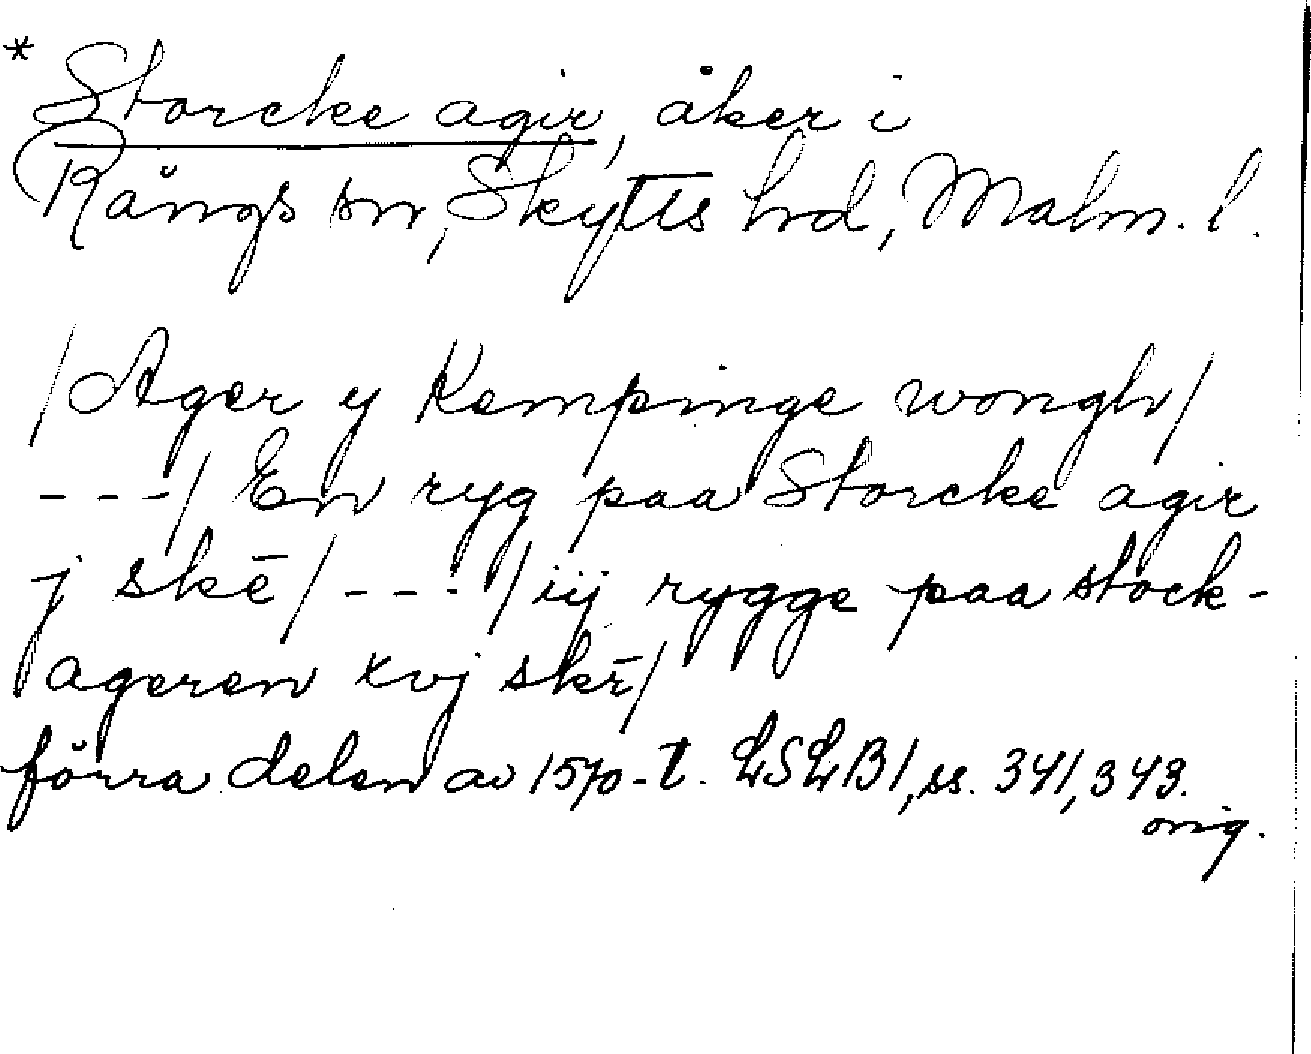 * Storcke agir, åker i
Rängs sn, Skytts hd, Malm. l.
/Ager y Kempinge wongh/
---/ En ryg paa Storcke agir
j skē/---/iij rygge paa stock-
ageren xvj skē/
förra delen av 1570-t. LSLB1, ss. 341, 343.
orig.